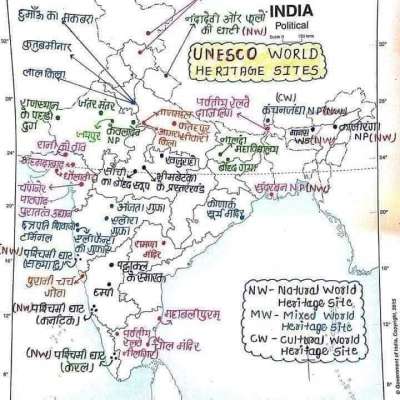 हुमायूँ का मकबरा
कुतुबमीनार
लाल किला
नंदादेवी और फूलों
की घाटी (NW)
INDIA
Political
UNESCO WORLD
HERITAGE SITES
राजस्थान
के पहाड़ी
दुर्ग
जंतर मंतर
जयपुर
केवलादेव
NP
ताजमहल
फतेहपुर
आगरा
किला
पर्वतीय रेलवे
दार्जिलिंग
(CW)
कंचनजंघा NP
मानस
WS (NW)
काजीरंगा
NP (NW)
नालंदा
महाविहार
बोध गया
रानी की वाव
अहमदाबाद
धौलावीरा
खजुराहो
सांची
का बौद्ध स्तूप
भीमबेटका
के प्रस्तरखंड
सुंदरबन NP (NW)
चंपानेर
पावागढ़
पुरातत्व उद्यान
छत्रपति शिवाजी
टर्मिनल
अजंता गुफा
एलोरा
गुफा
एलीफेंटा
की गुफाएं
कोणार्क
सूर्य मंदिर
(NW) पश्चिमी घाट
(सह्याद्रि)
रामप्पा
मंदिर
पट्टदकल
के स्मारक
पुराना चर्च
गोवा
हम्पी
(NW) पश्चिमी घाट
(कर्नाटक)
महाबलीपुरम्
(NW) पश्चिमी घाट
(केरल)
पर्वतीय
रेलवे
नीलगिरी
चोल मंदिर
NW - Natural World
Heritage Site
MW - Mixed World
Heritage Site
CW - Cultural World
Heritage Site
© Government of India, Copyright,